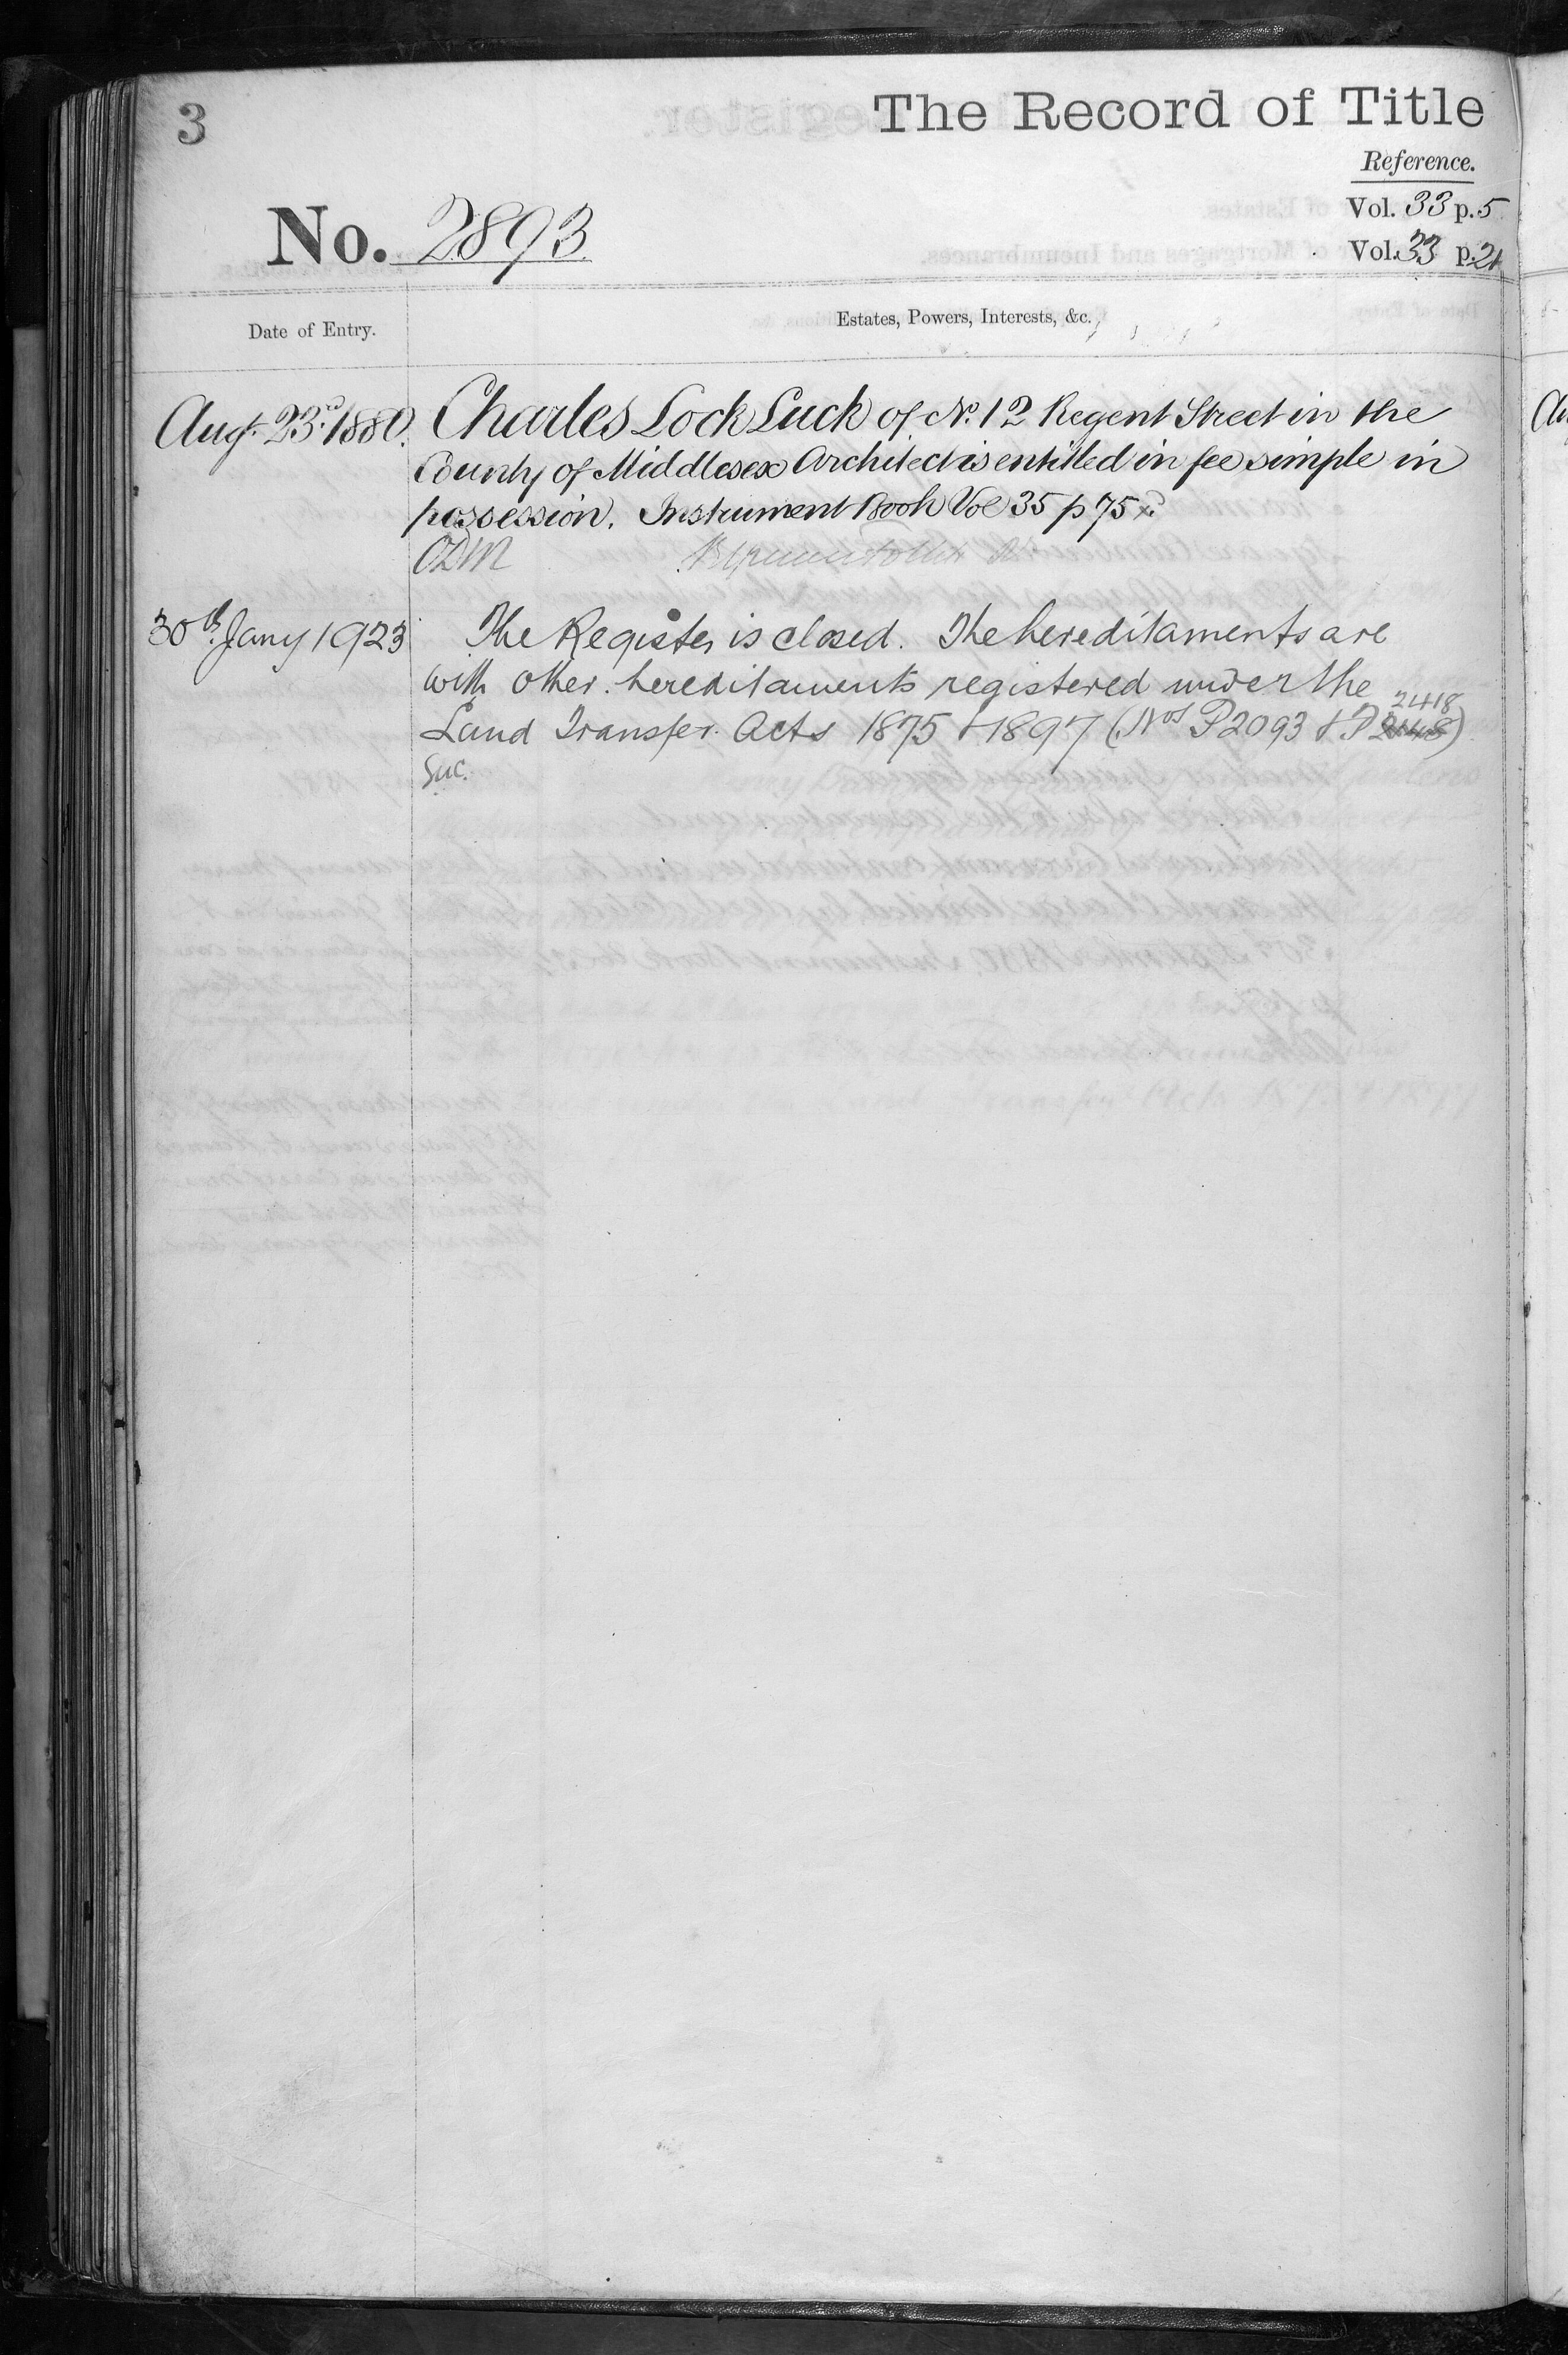 3
The Record of Title
Reference.
Vol. 33 p. 5
No. 2893.
Vol. 33 p. 21
Date of Entry.
Estates, Powers, Interests, &c.
Augt. 23rd 1880. Charles Lock Luck of No. 12 Regent Street in the
County of Middlesex Architect is entitled in fee simple in
possession. Instrument Book Vol 35 p 75
30th Jany 1923 The Register is closed. The hereditaments are
with other hereditaments registered under the
2418
Land Transfer Acts 1875 & 1897 (Nos P2093 & P)